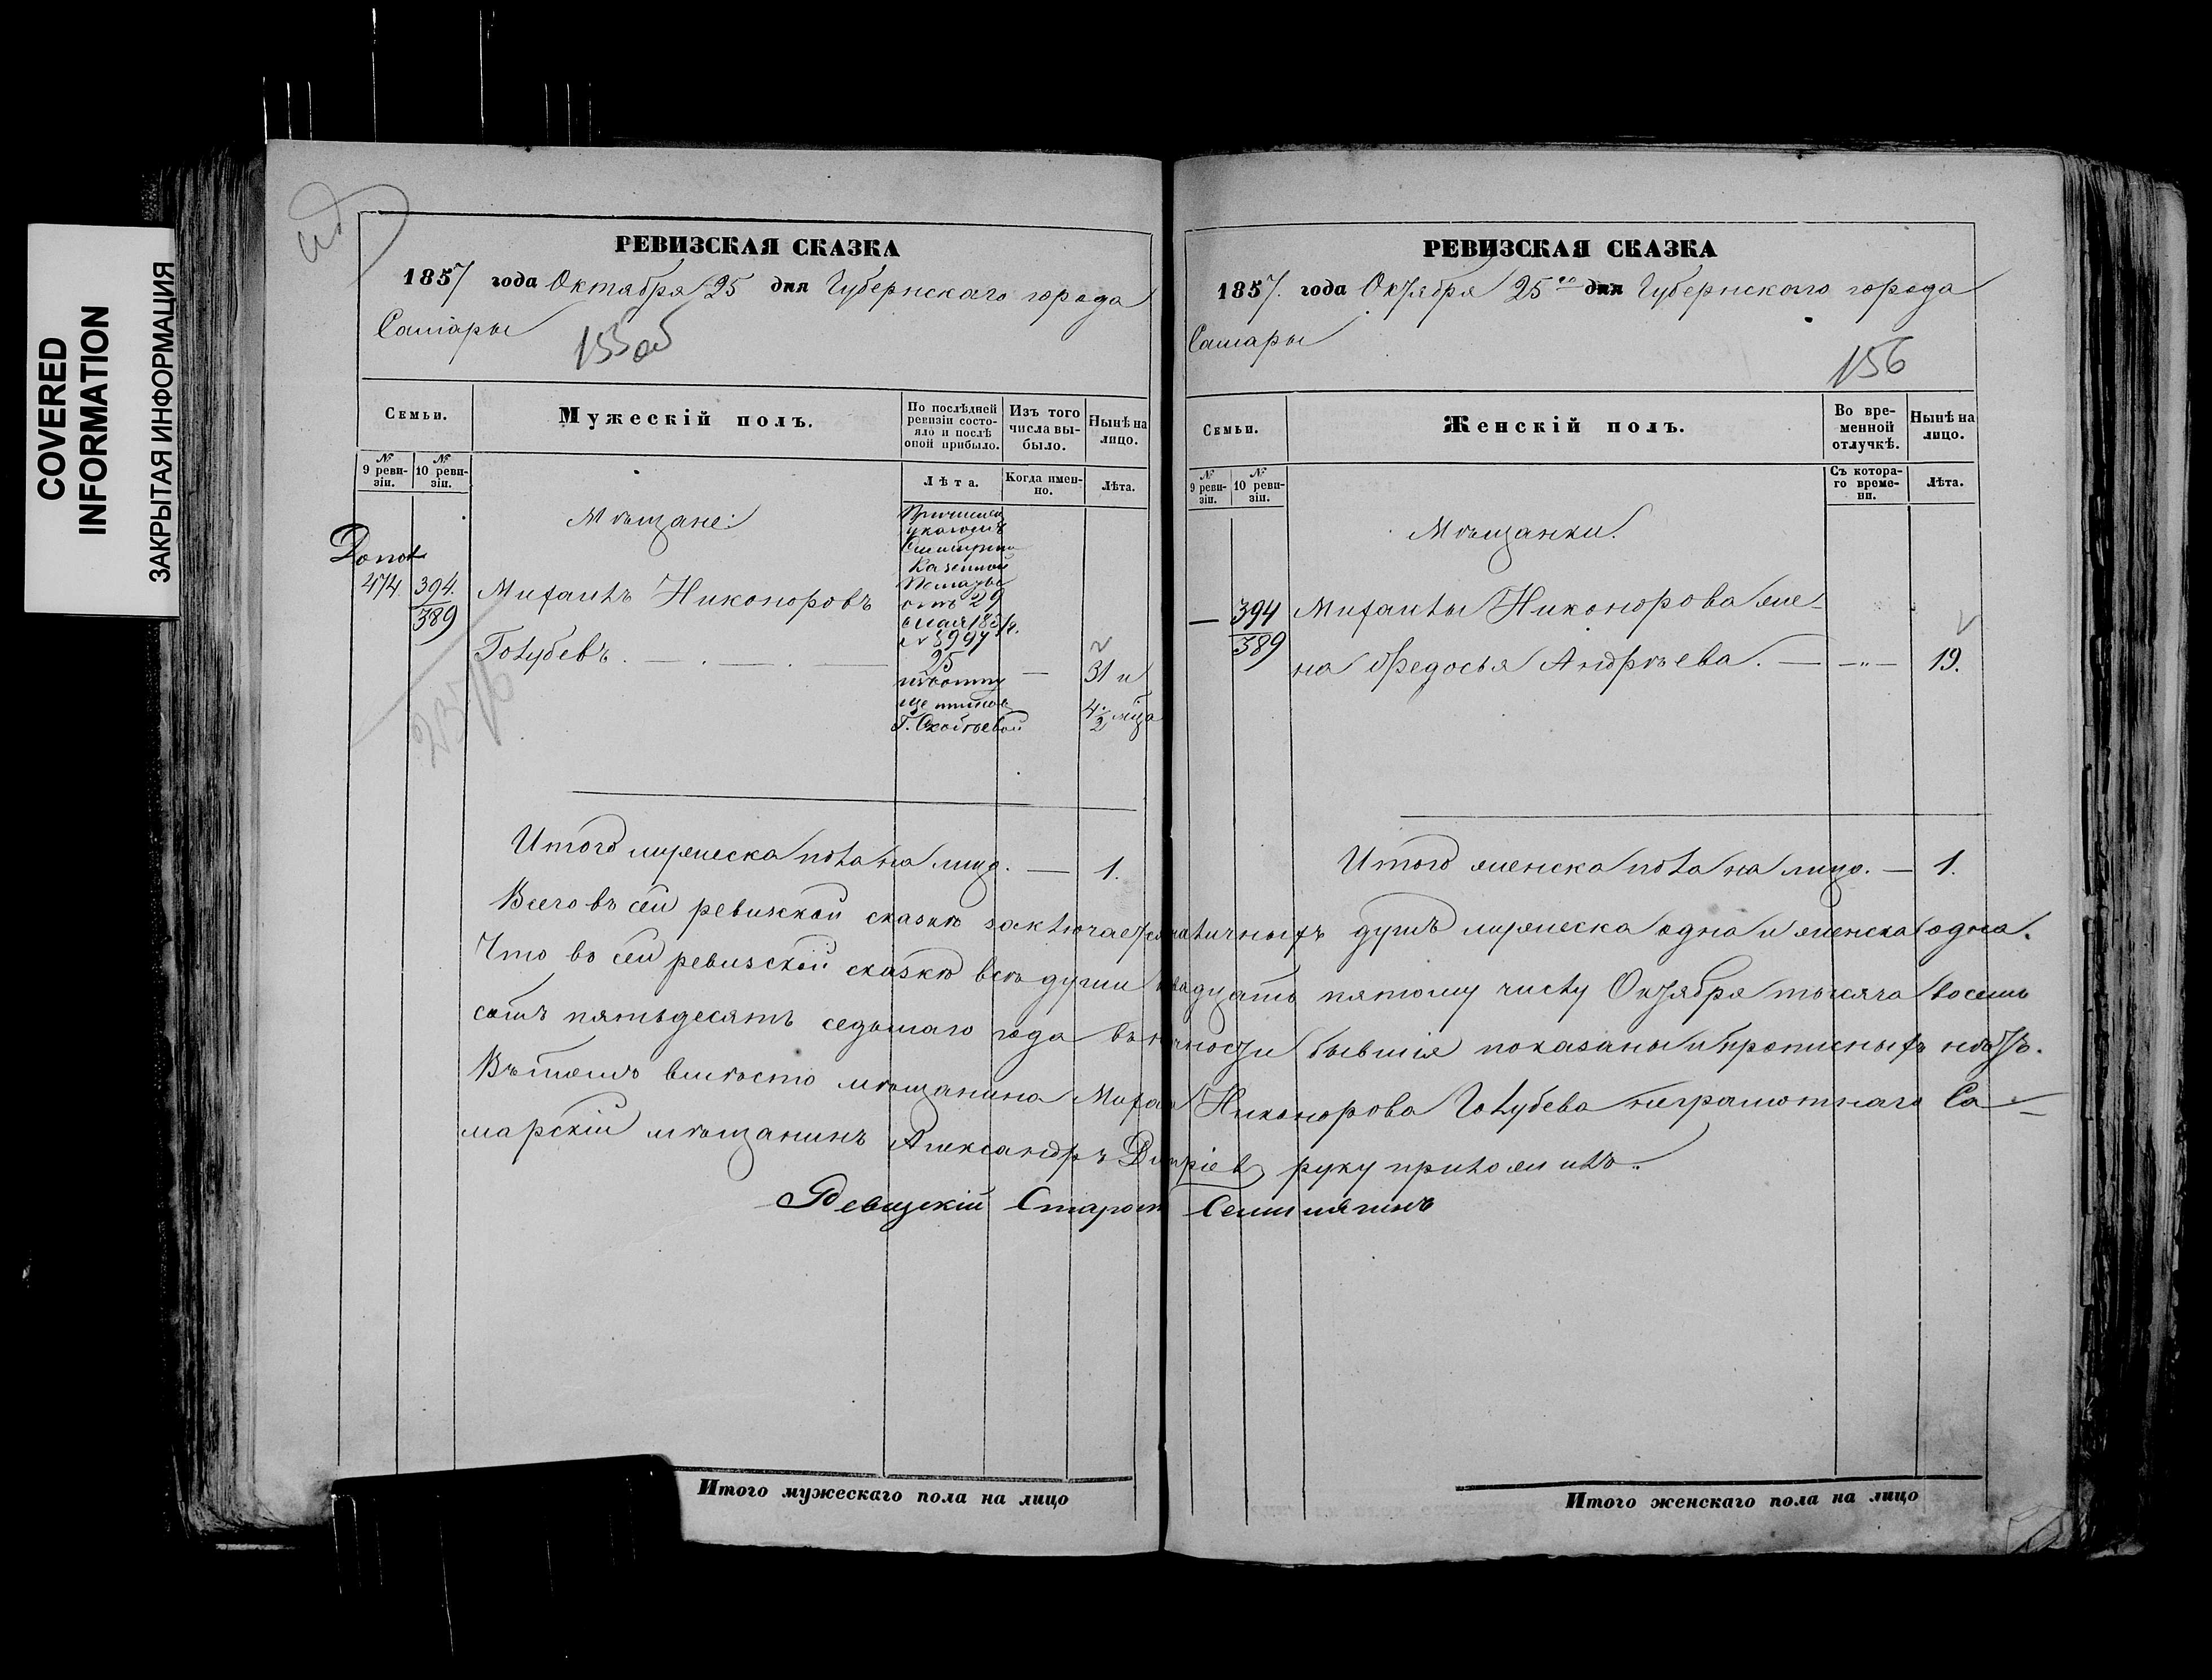 COVERED
INFORMATION
ЗАКРЫТАЯ ИНФОРМАЦИЯ
РЕВИЗСКАЯ СКАЗКА
1857 года Октября 25 дня Губернскаго города
Самары
155 об
Семьи.
Мужескiй полъ.
По послѣдней
ревизiи состо-
яло и послѣ
оной прибыло.
Изъ того
числа вы-
было.
Нынѣ на
лицо.
№
9 реви-
зiи.
№
10 реви-
зiи.
Лѣта.
Когда имен-
но.
Лѣта.
Мѣщане:
Причисленъ
указомъ
Казенной
Палаты
отъ 29
мая
№ 3994
25
Допол
474. 394.
389
Михаилъ Никоноровъ
Голубевъ.
31 и
4 1/2 мѣца
Итого мужеска пола на лицо. — 1.
РЕВИЗСКАЯ СКАЗКА
1857. года Октября 25го дня Губернскаго города
Самары
156
Семьи.
Женскiй полъ.
Во вре-
менной
отлучкѣ.
Нынѣ на
лицо.
№
9 реви-
зiи.
№
10 реви-
зiи.
Съ котора-
го време-
ни.
Лѣта.
Мѣщанки.
— 394
389
Михаилы Никонорова же-
на Федосья Андрѣева. — —"— 19.
Итого женска пола на лицо. — 1.
Всего въ сей ревизской сказкѣ заключается наличныхъ душъ мужеска одна и женска одна.
Что во сей ревизской сказкѣ всѣ души двадцать пятому числу Октября тысяча восемь
сотъ пятьдесятъ седьмаго года въ личности бывшiя показаны и прописныхъ нѣтъ.
Въ томъ вмѣсто мѣщанина Михаила Никонорова Голубева неграмотнаго Са-
марскiй мѣщанинъ Александръ Дмитрiевъ руку приложилъ.
Ревизскiй Староста
Итого мужескаго пола на лицо
Итого женскаго пола на лицо